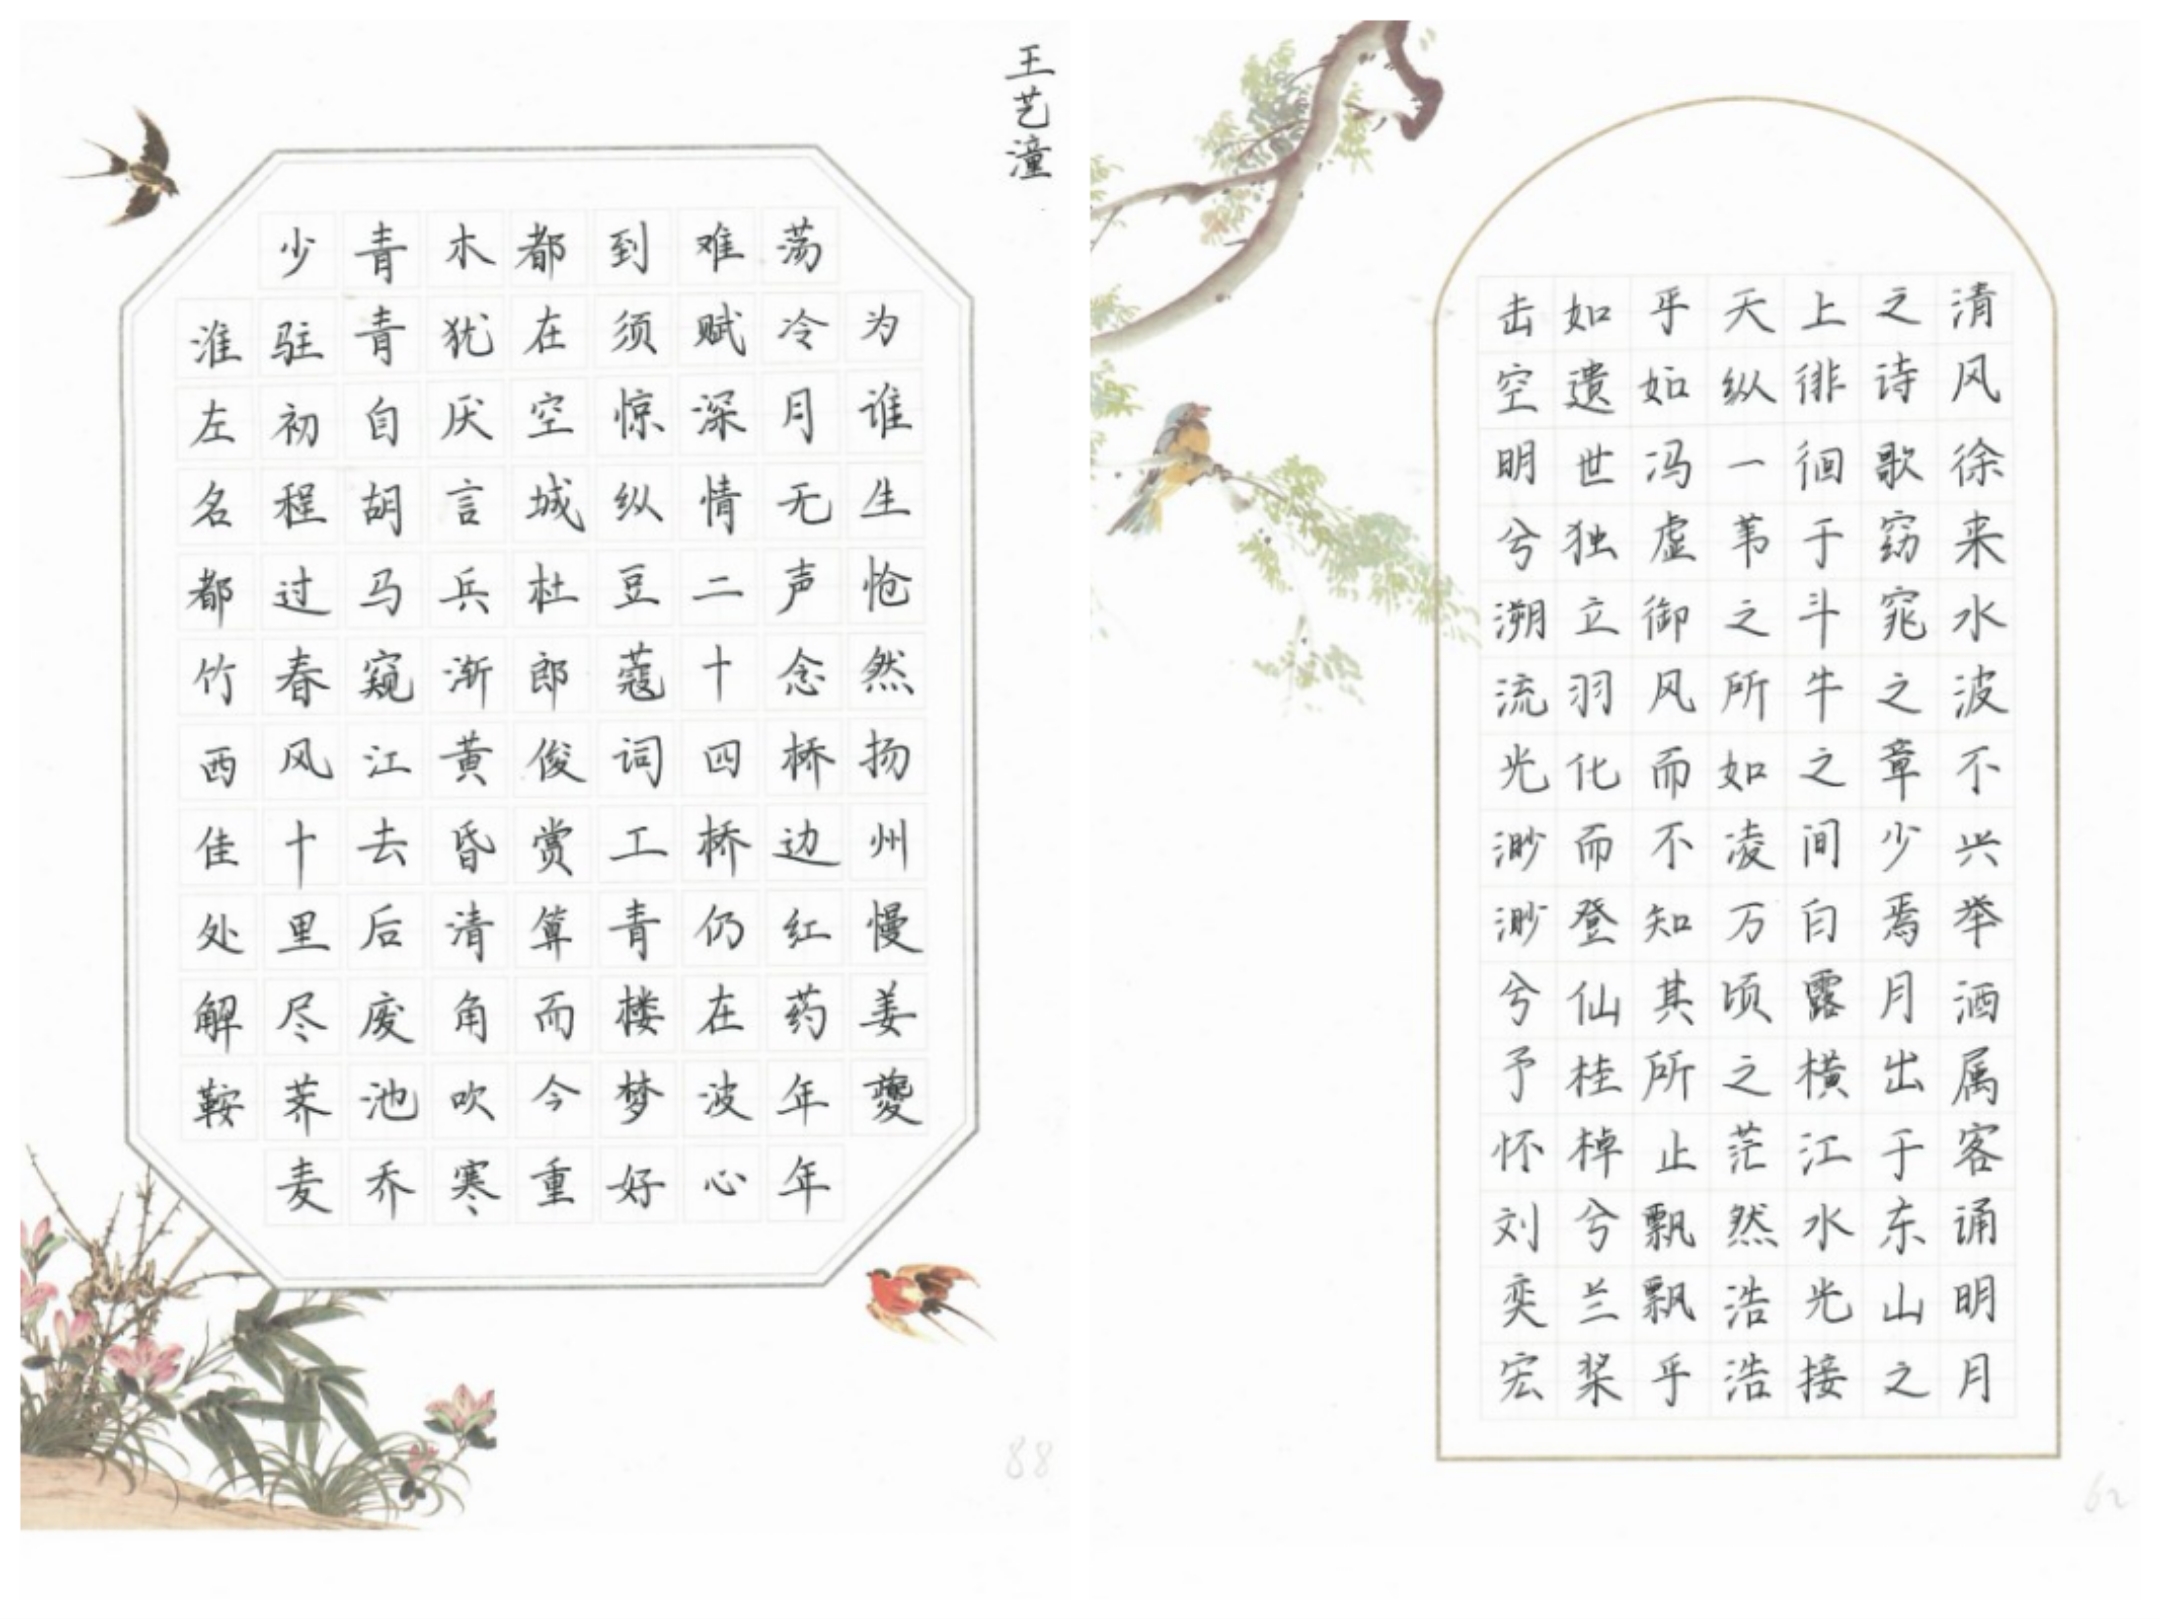 王艺潼
淮左名都竹西佳处解鞍
少驻初程过春风十里尽荠麦
青青自胡马窥江去后废池乔
木犹厌言兵渐黄昏清角吹寒
都在空城杜郎俊赏算而今重
到须惊纵豆蔻词工青楼梦好
难赋深情二十四桥仍在波心
荡冷月无声念桥边红药年年
为谁生怆然扬州慢姜夔
88
清风徐来水波不兴举酒属客诵明月
之诗歌窈窕之章少焉月出于东山之
上徘徊于斗牛之间白露横江水光接
天纵一苇之所如凌万顷之茫然浩浩
乎如冯虚御风而不知其所止飘飘乎
如遗世独立羽化而登仙桂棹兮兰桨
击空明兮溯流光渺渺兮予怀刘奕宏
62